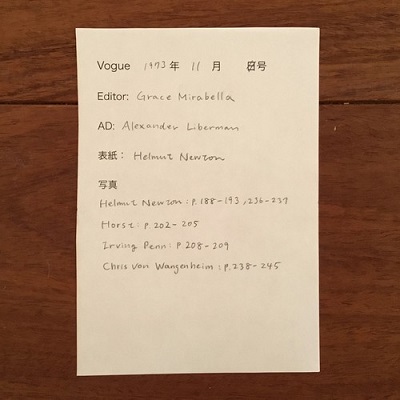 Vogue 1973年 11月 号
Editor: Grace Mirabella
AD: Alexander Liberman
表紙： Helmut Newton
写真
Helmut Newton: p.188-193, 236-237
Horst: p.202-205
Irving Penn: p.208-209
Chris von Wangenheim: p.238-245